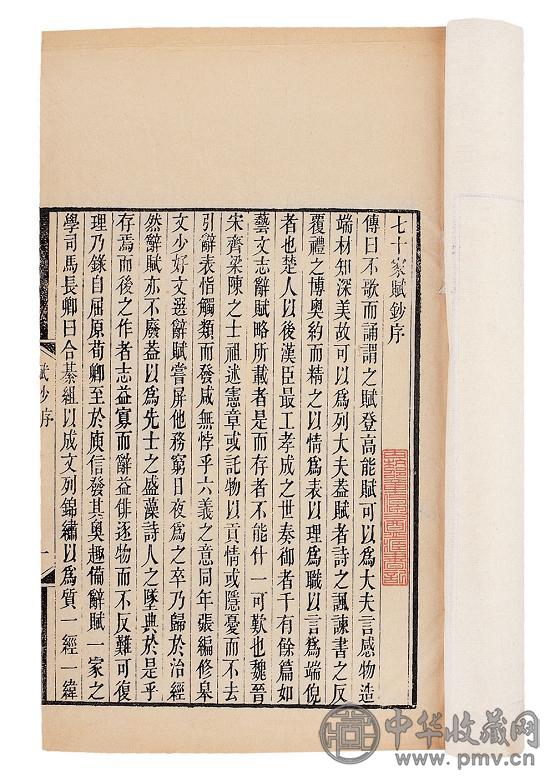 七十家賦鈔序
傳曰不歌而誦謂之賦登高能賦可以爲大夫言感物造
端材知深美故可以爲列大夫葢賦者詩之諷諫書之反
覆禮之博奧約而精之以情爲表以理爲職以言爲端倪
者也楚人以後漢臣最工孝成之世奏御者千有餘篇如
藝文志辭賦略所載者是而存者不能什一可歎也魏晉
宋齊梁陳之士祖述憲章或託物以貢情或隱憂而不去
引辭表恉觸類而發咸無悖乎六義之意同年張編修皋
文少好文選辭賦嘗屏他務窮日夜爲之卒乃歸於治經
然辭賦亦不廢葢以爲先士之盛藻詩人之墜典於是乎
存焉而後之作者志益寡而辭益俳逐物而不反難可復
理乃錄自屈原荀卿至於庾信發其奥趣備辭賦一家之
學司馬長卿曰合綦組以成文列錦繡以爲質一經一緯
賦鈔序
一
中华收藏网
www.pmv.cn